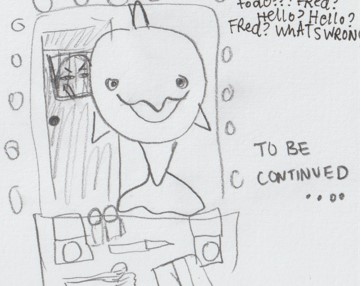 todo??? Fred?
Hello? Hello?
Fred? WHATS WRONG
TO BE
CONTINUED
....